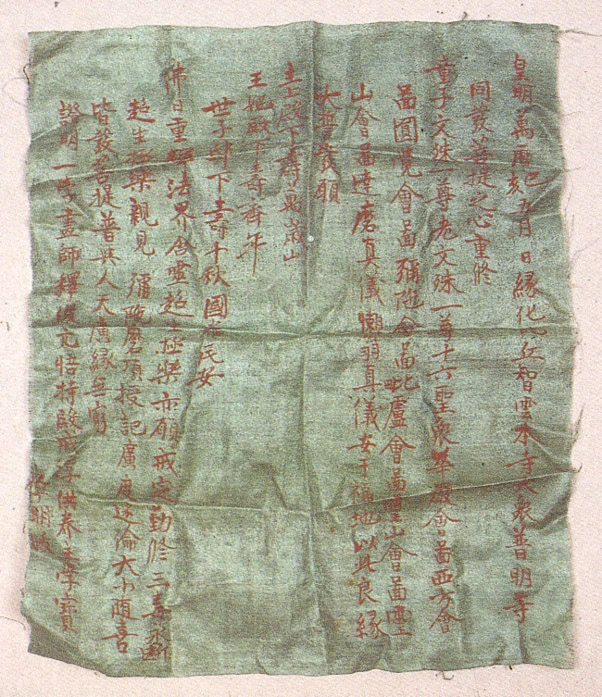 皇明萬曆己亥五月 日緣化比丘智雲本寺大衆普明等
同發菩提之心重修
童子文殊一尊老文殊一尊十六聖衆華嚴會圖西方會
圖圓覺會圖彌陀會圖毗盧會圖靈山會圖靈
山會圖達磨真儀懶翁真儀安于福地以此良緣
大聖發願
主上殿下壽萬崗山
王妃殿下壽齊年
世子邸下壽千秋國泰民安
佛日重輝法界含靈超生極樂亦願戒定勤修三毒永斷
超生極樂親見 彌陀磨頂授記廣度迷淪大小隨喜
皆發菩提普與人天廣緣無窮
證明一學 畫師釋 元悟持殿 供養主學寶